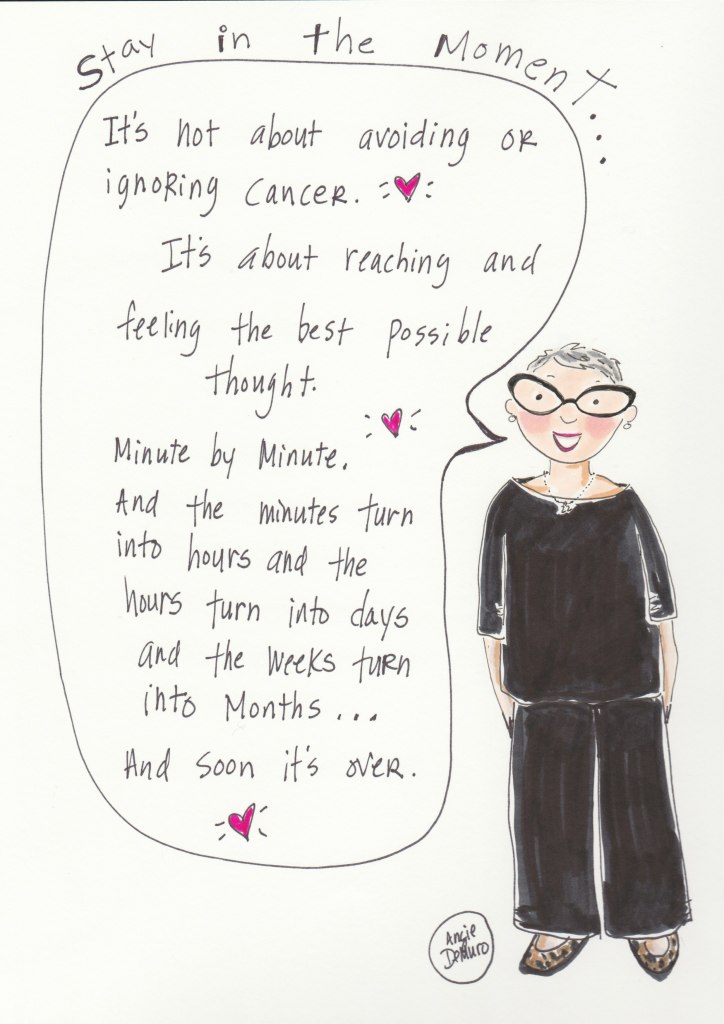 Stay in the Moment...
It's not about avoiding or
ignoring cancer.
It's about reaching and
feeling the best possible
thought.
Minute by Minute.
And the minutes turn
into hours and the
hours turn into days
and the weeks turn
into Months...
And soon it's over.
Angie
DeMuro